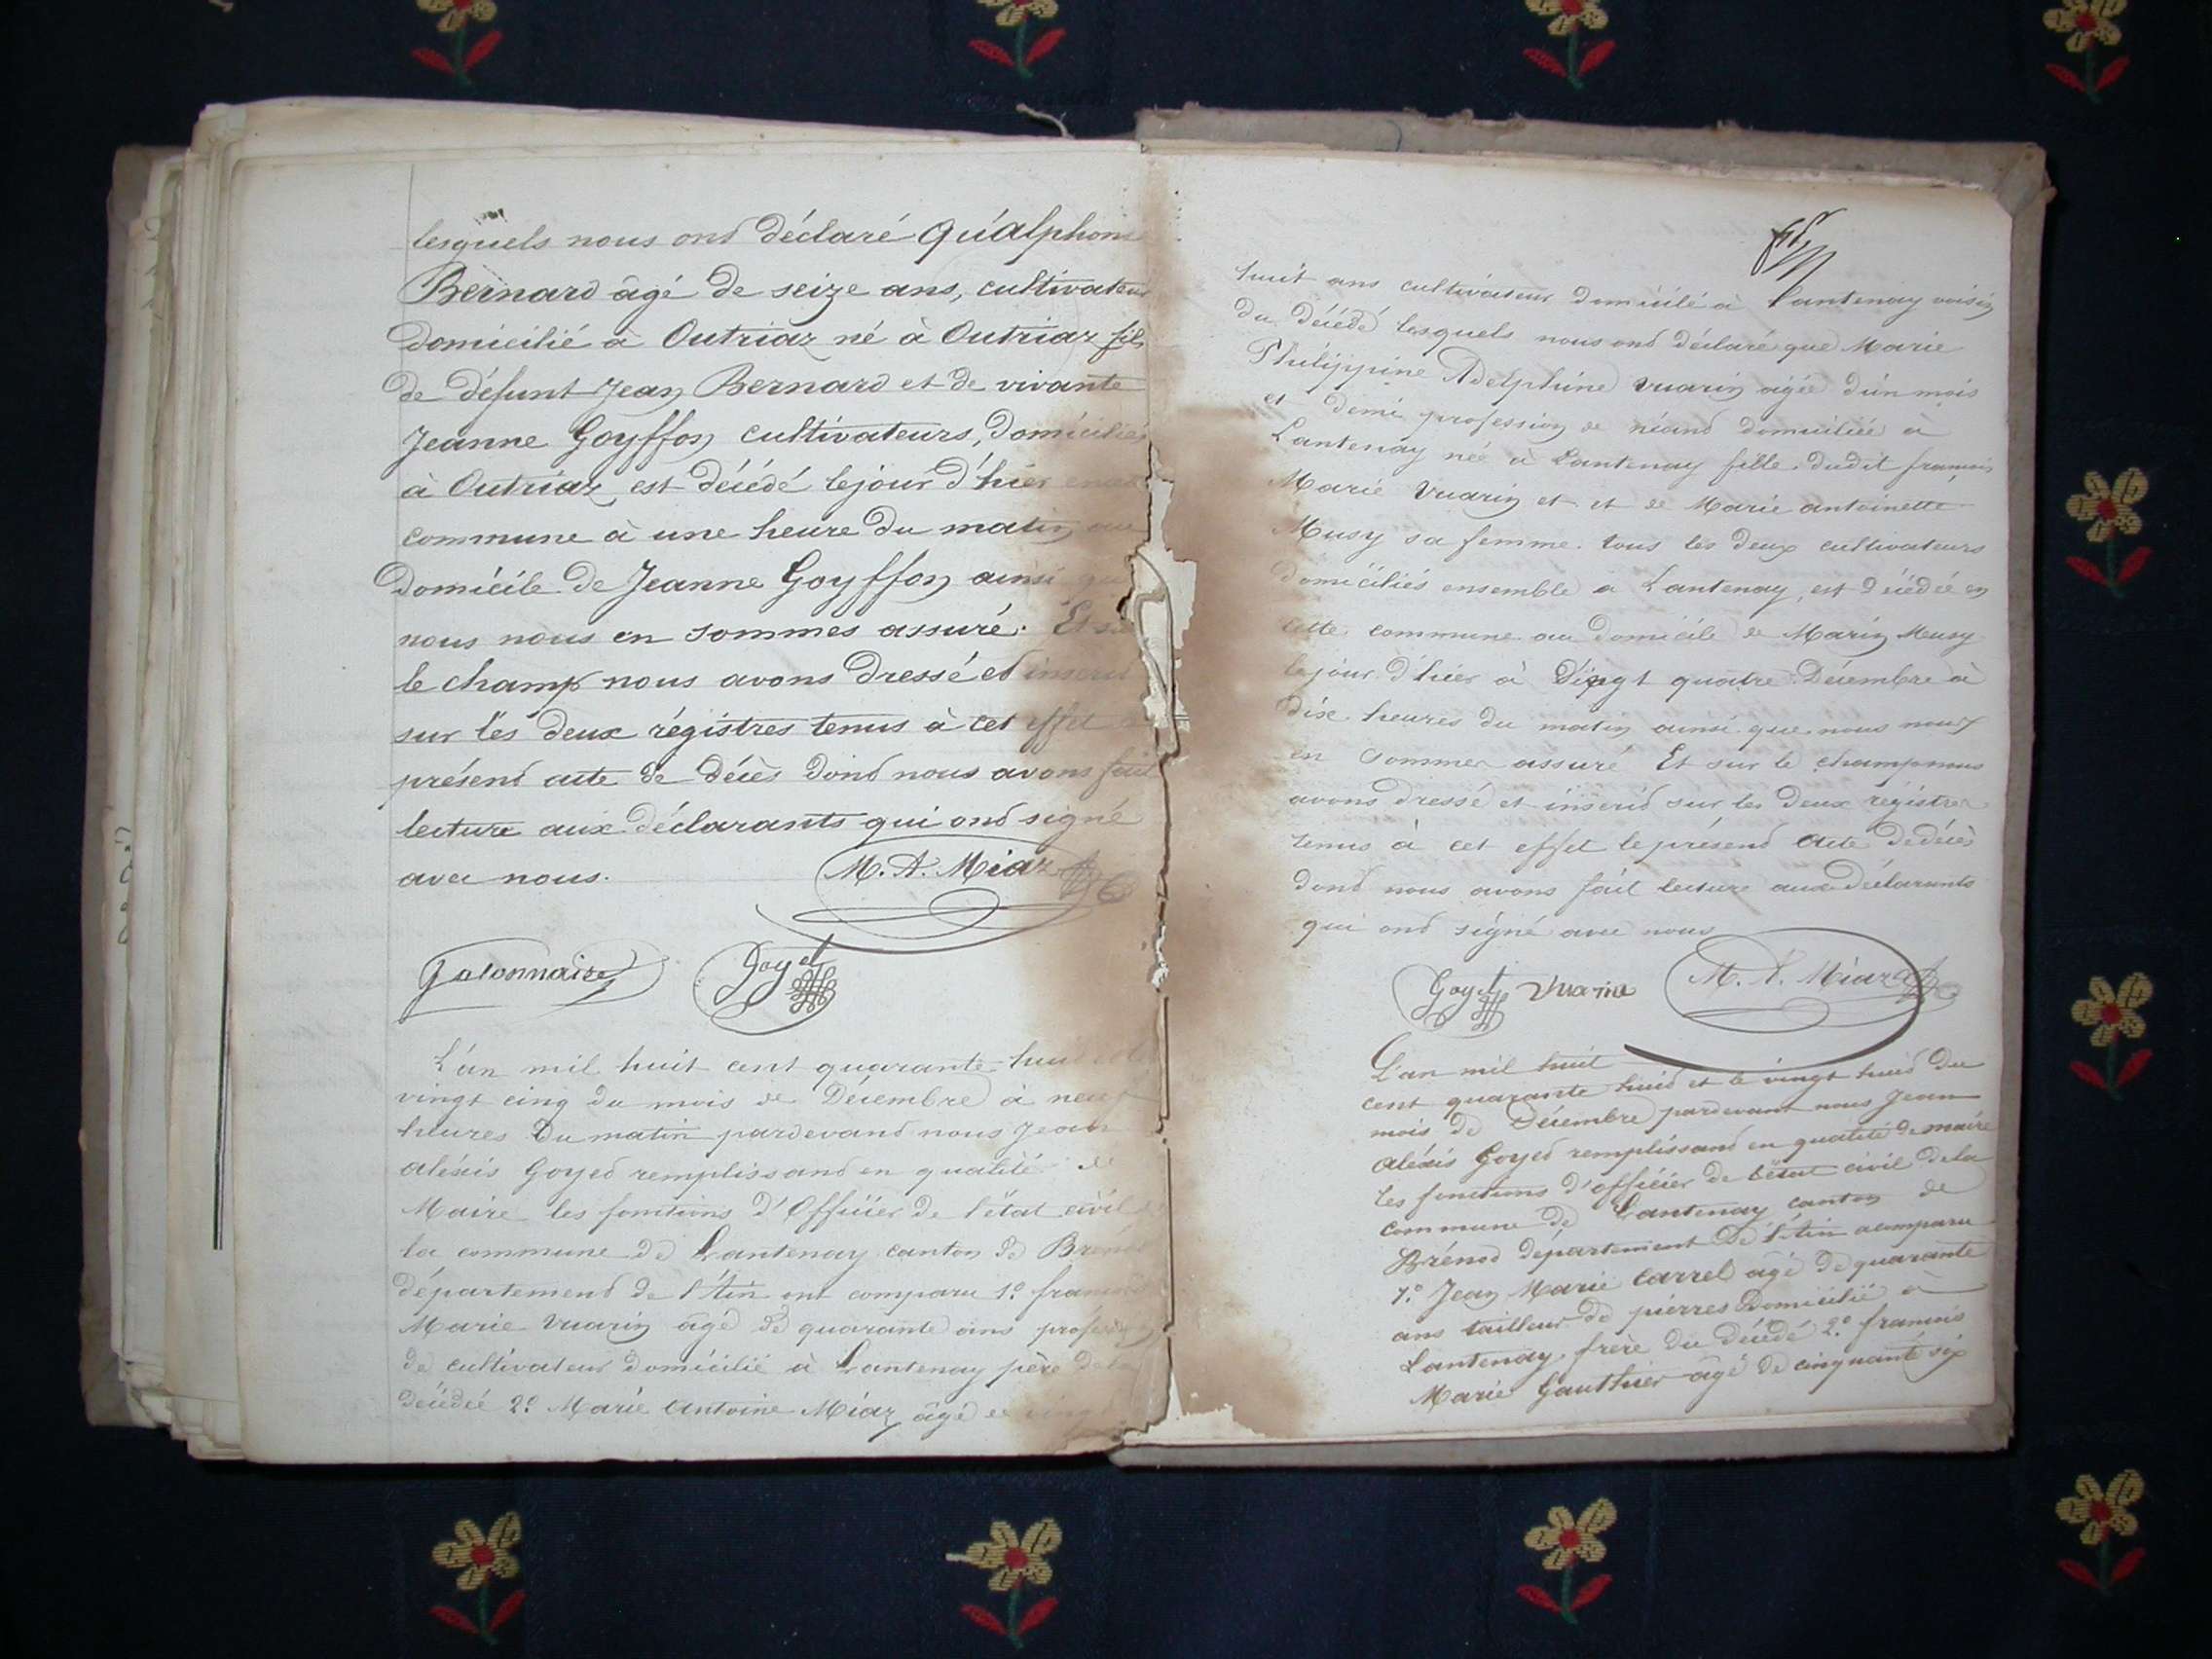 lesquels nous ond déclaré qu'alphons
Bernard âgé de seize ans, cultivateur
domicilié à Outriaz né à Outriaz fils
de défunt Jean Bernard et de vivante
Jeanne Goyffon cultivateurs, domiciliés
à Outriaz est décédé le jour d'hier en
commune à une heure du matin au
domicile de Jeanne Goyffon ainsi que
nous nous en sommes assuré. Et sur
le champ nous avons dressé et inscrid
sur les deux régistres tenus à cet effet
présend acte de décès dond nous avons fait
lecture aux déclarants qui ond signé
avec nous. M. A. Miaz
Jalonnaire Goyet
L'an mil huit cent quarante huit
vingt cinq du mois de Décembre à neuf
heures du matin pardevand nous Jean
aléxis Goyed remplissand en qualité de
Maire les fonctions d'Officier de l'état civil
la commune de Lantenay canton de Brénod
départemend de l'Ain ont comparu 1º francois
Marie Vuarin âgé de quarante ans profession
de cultivateur domicilié à Lantenay père de la
décédée 2º Marie Antoine Miaz âgé de vingt
huit ans cultivateur domicilié à Lantenay voisin
du décédé lesquels nous ond déclaré que Marie
Philippine Adelphine Vuarin agée d'un mois
et demi profession de néand domiciliée à
Lantenay née à Lantenay fille dudit francois
Marie Vuarin et et de Marie antoinette
Musy sa femme. tous les deux cultivateurs
domiciliés ensemble à Lantenay, est décédée en
cette commune au domicile de Marin Musy
le jour d'hier à vingt quatre Décembre à
dix heures du matin ainsi que nous nous
en sommes assuré Et sur le champ nous
avons dressé et inscrid sur les deux régistres
tenus à cet effet le présend acte de décès
dond nous avons fait lecture aux déclarants
qui ond signé avec nous
Goyet Vuarin M. A. Miaz
L'an mil huit
cent quarante huid et le vingt huid du
mois de Décembre pardevant nous Jean
aléxis Goyed remplissand en qualité de maire
les fonctions d'officier de l'état civil de la
commune de Lantenay canton de
Brénod département de l'Ain a comparu
1º Jean Marie Carrel âgé de quarante
ans tailleur de pierres domicilié à
Lantenay. frère du décédé 2º francois
Marie Gauthier âgé de cinquante six